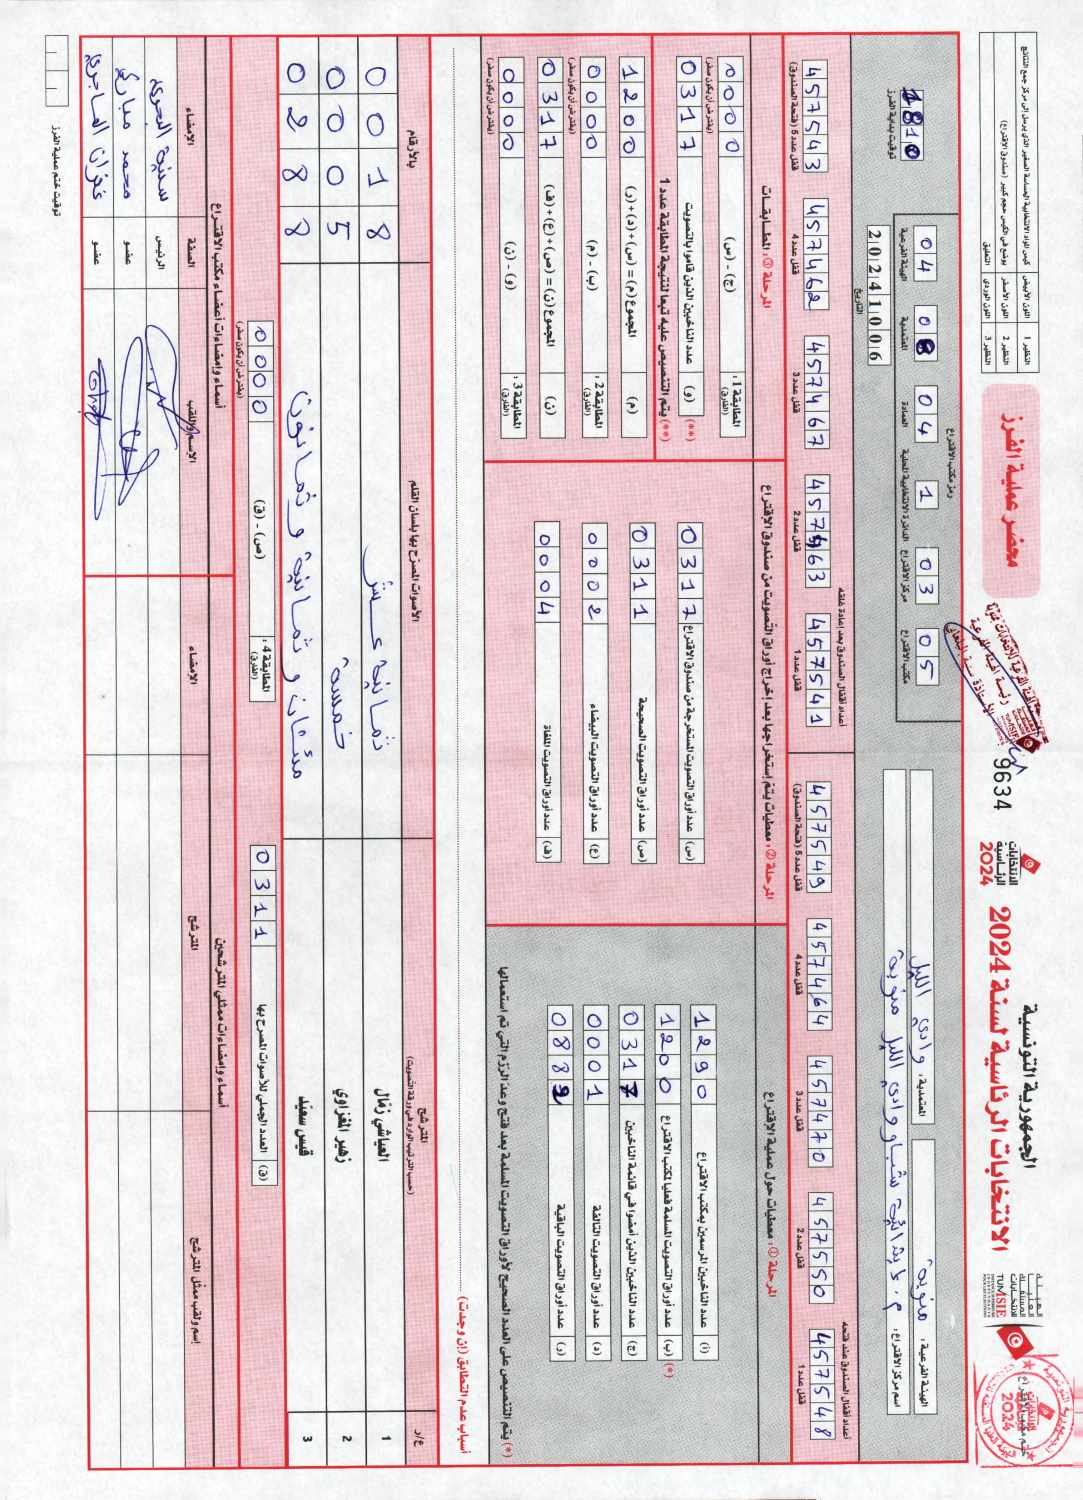 الجمهورية التونسية
الانتخابات الرئاسية لسنة 2024
الانتخابات الرئاسية 2024
9634
محضر عملية الفرز
النظير 1 اللون الأبيض
النظير 2 اللون الأصفر
النظير 3 اللون الوردي التعليق
الهيئة الفرعية: منوبة
المعتمدية: وادي الليل
رمز مكتب الاقتراع
04 08 04 1 03 05
الهيئة الفرعية المعتمدية العمادة الدائرة الانتخابية المحلية مركز الاقتراع مكتب الاقتراع
التاريخ
20241006
توقيت بداية الفرز
أعداد أقفال الصندوق عند فتحه
457548 قفل عدد 1
457550 قفل عدد 2
457470 قفل عدد 3
457464 قفل عدد 4
457549 قفل عدد 5 (فتحة الصندوق)
أعداد أقفال الصندوق بعد إعادة غلقه
457541 قفل عدد 1
قفل عدد 2
457467 قفل عدد 3
457462 قفل عدد 4
457543 قفل عدد 5 (فتحة الصندوق)
المرحلة ①: معطيات حول عملية الاقتراع
(أ) عدد الناخبين المرسمين بمكتب الاقتراع 1290
(ب) عدد أوراق التصويت المسلمة فعليا لمكتب الاقتراع 1200 (*)
(ج) عدد الناخبين الذين أمضوا في قائمة الناخبين 0317
(د) عدد أوراق التصويت التالفة 0001
(ر) عدد أوراق التصويت الباقية 0882
(*) يتم التنصيص على العدد الصحيح لأوراق التصويت المسلمة بعد فتح وعد الرزم التي تم استعمالها
المرحلة ②: معطيات يتم إستخراجها بعد إخراج أوراق التصويت من صندوق الاقتراع
(س) عدد أوراق التصويت المستخرجة من صندوق الاقتراع 0317
(ص) عدد أوراق التصويت الصحيحة 0311
(ع) عدد أوراق التصويت البيضاء 0002
(ف) عدد أوراق التصويت الملغاة 0004
المرحلة ③: المطابقات
المطابقة 1: (الفارق) (ج) - (س) 0000 (يفترض أن يكون صفر)
(**) (و) عدد الناخبين الذين قاموا بالتصويت 0317
(**) يتم التنصيص عليه تبعا لنتيجة المطابقة عدد 1
(م) المجموع (م) = (س) + (د) + (ر) 1200
المطابقة 2: (الفارق) (ب) - (م) 0000 (يفترض أن يكون صفر)
(ن) المجموع (ن) = (ص) + (ع) + (ف) 0317
المطابقة 3: (الفارق) (و) - (ن) 0000 (يفترض أن يكون صفر)
أسباب عدم التطابق (إن وجدت)
ع/ر المترشح (حسب الترتيب الوارد في ورقة التصويت) الأصوات المصرّح بها بلسان القلم بالأرقام
1 العياشي زمّال ثمانية عشر 0018
2 زهير المغزاوي خمسة 0005
3 قيس سعيّد مئتان و ثمانية و ثمانون 0288
(ق) العدد الجملي للأصوات المصرح بها 0311
المطابقة 4: (الفارق) (ص) - (ق) 0000 (يفترض أن يكون صفر)
أسماء وإمضاءات ممثلي المترشحين
إسم ولقب ممثل المترشح المترشح الامضاء
أسماء وإمضاءات أعضاء مكتب الاقتراع
الاسم واللقب الصفة الإمضاء
الرئيس
عضو محمد مباركي
عضو
توقيت ختم عملية الفرز